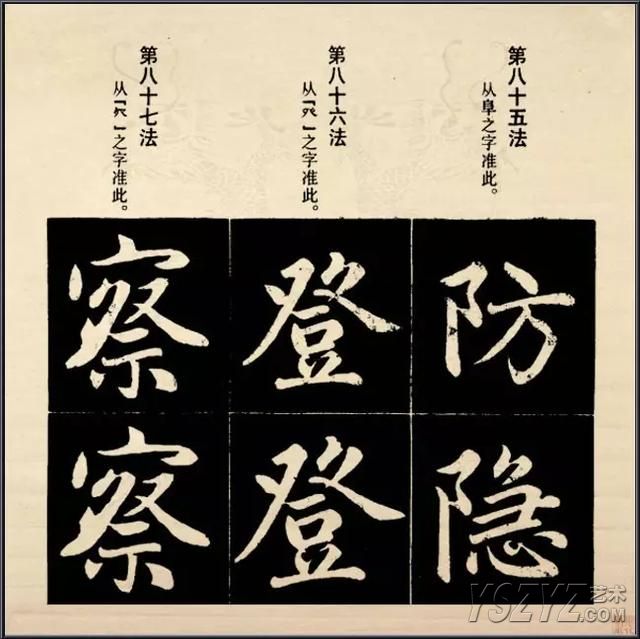 第八十五法
从阜之字准此。
第八十六法
从「癶」之字准此。
第八十七法
从「」之字准此。
防
隐
登
登
察
察
YSZYZ艺术
.COM